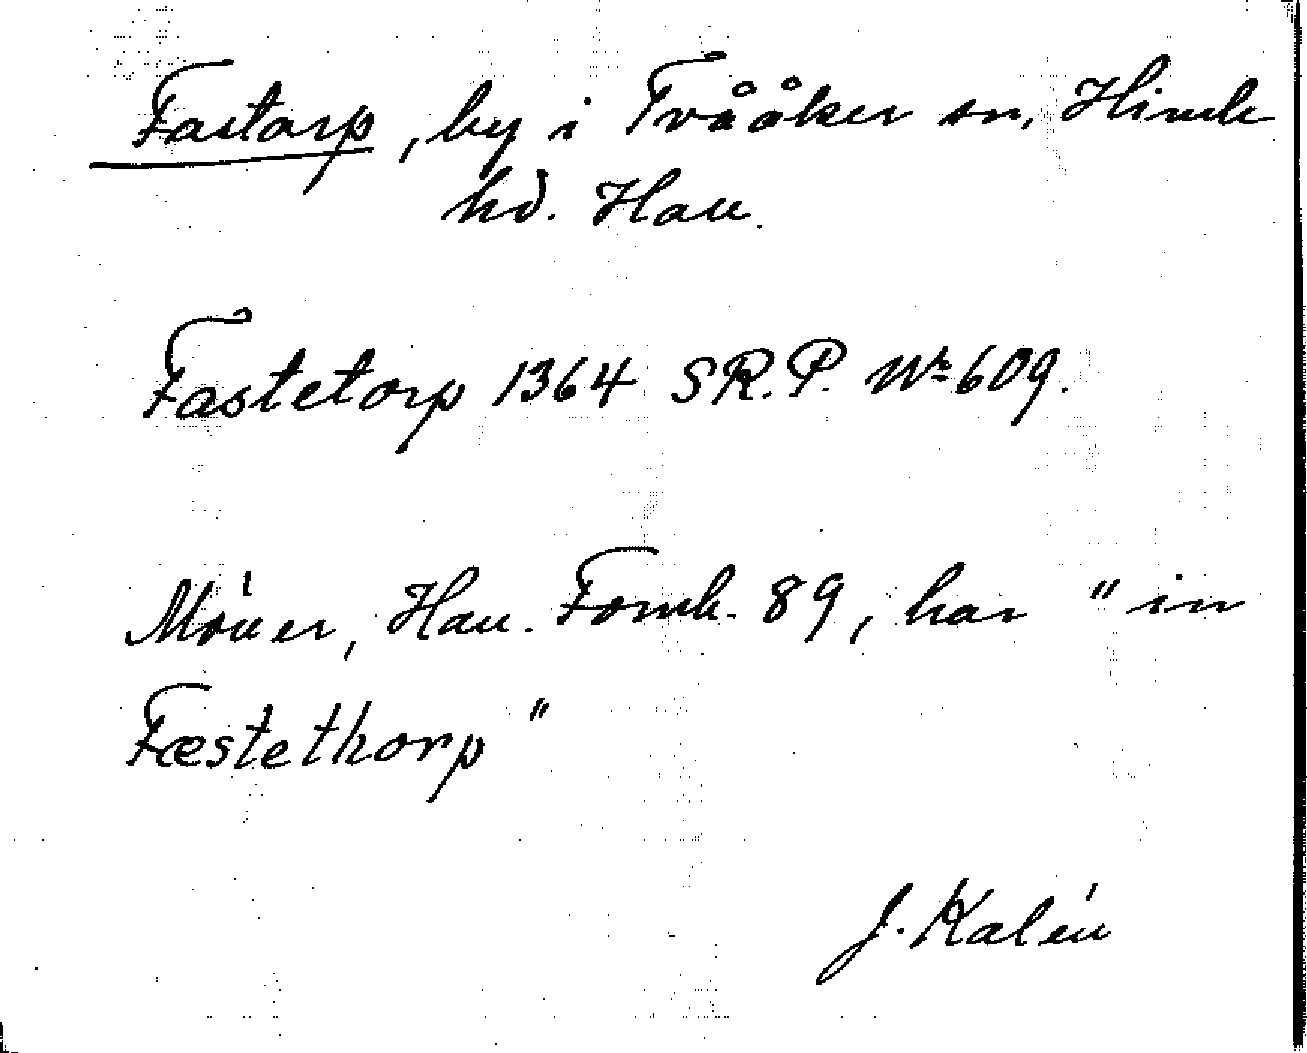 Fastarp, by i Tvååker sn, Himle
hd. Hall.
Fastetorp 1364 SR.P. Nr 609.
Möller, Hall. Fornh. 89, har "in
Fæstethorp"
J. Kalén